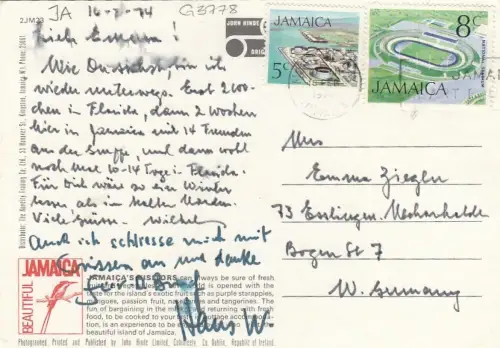 JA 16-2-74 G3778
2JM23
JOHN HINDE
ORIG
Liebe Emma!
Wie Du siehst, bin ich
wieder unterwegs. Erst 2 Wo-
chen in Florida, dann 2 Wochen
hier in Jamaica mit 14 Freunden
aus der Gruppe, und dann wohl
noch mal 10-14 Tage in Florida.
Für Dich wäre so ein Winter
besser als im kalten Norden.
Viele Grüsse.
Auch ich schliesse mich mit
Grüssen an und danke
Hans W.
JAMAICA
5c
8c
NATIONAL STADIUM
JAMAICA
Mrs
Emma Ziegler
73 Esslingen-Neckarhalde
Bogen St 7
W. Germany
BEAUTIFUL
JAMAICA
JAMAICA'S VISITORS can always be sure of fresh
world is opened with the
taste for the island's exotic fruit such as purple starapples,
passion fruit, and tangerines. The
fun of bargaining in the returning with fresh
food, to be cooked to your cottage accommoda-
tion, is an experience to be
beautiful island of Jamaica.
Photographed Printed and Published by John Hinde Limited, Cabinteely, Co. Dublin, Republic of Ireland.
Distributor: The Novelty Trading Co. Ltd., 53 Hanover St., Kingston, Jamaica W.I. Phone: 25881